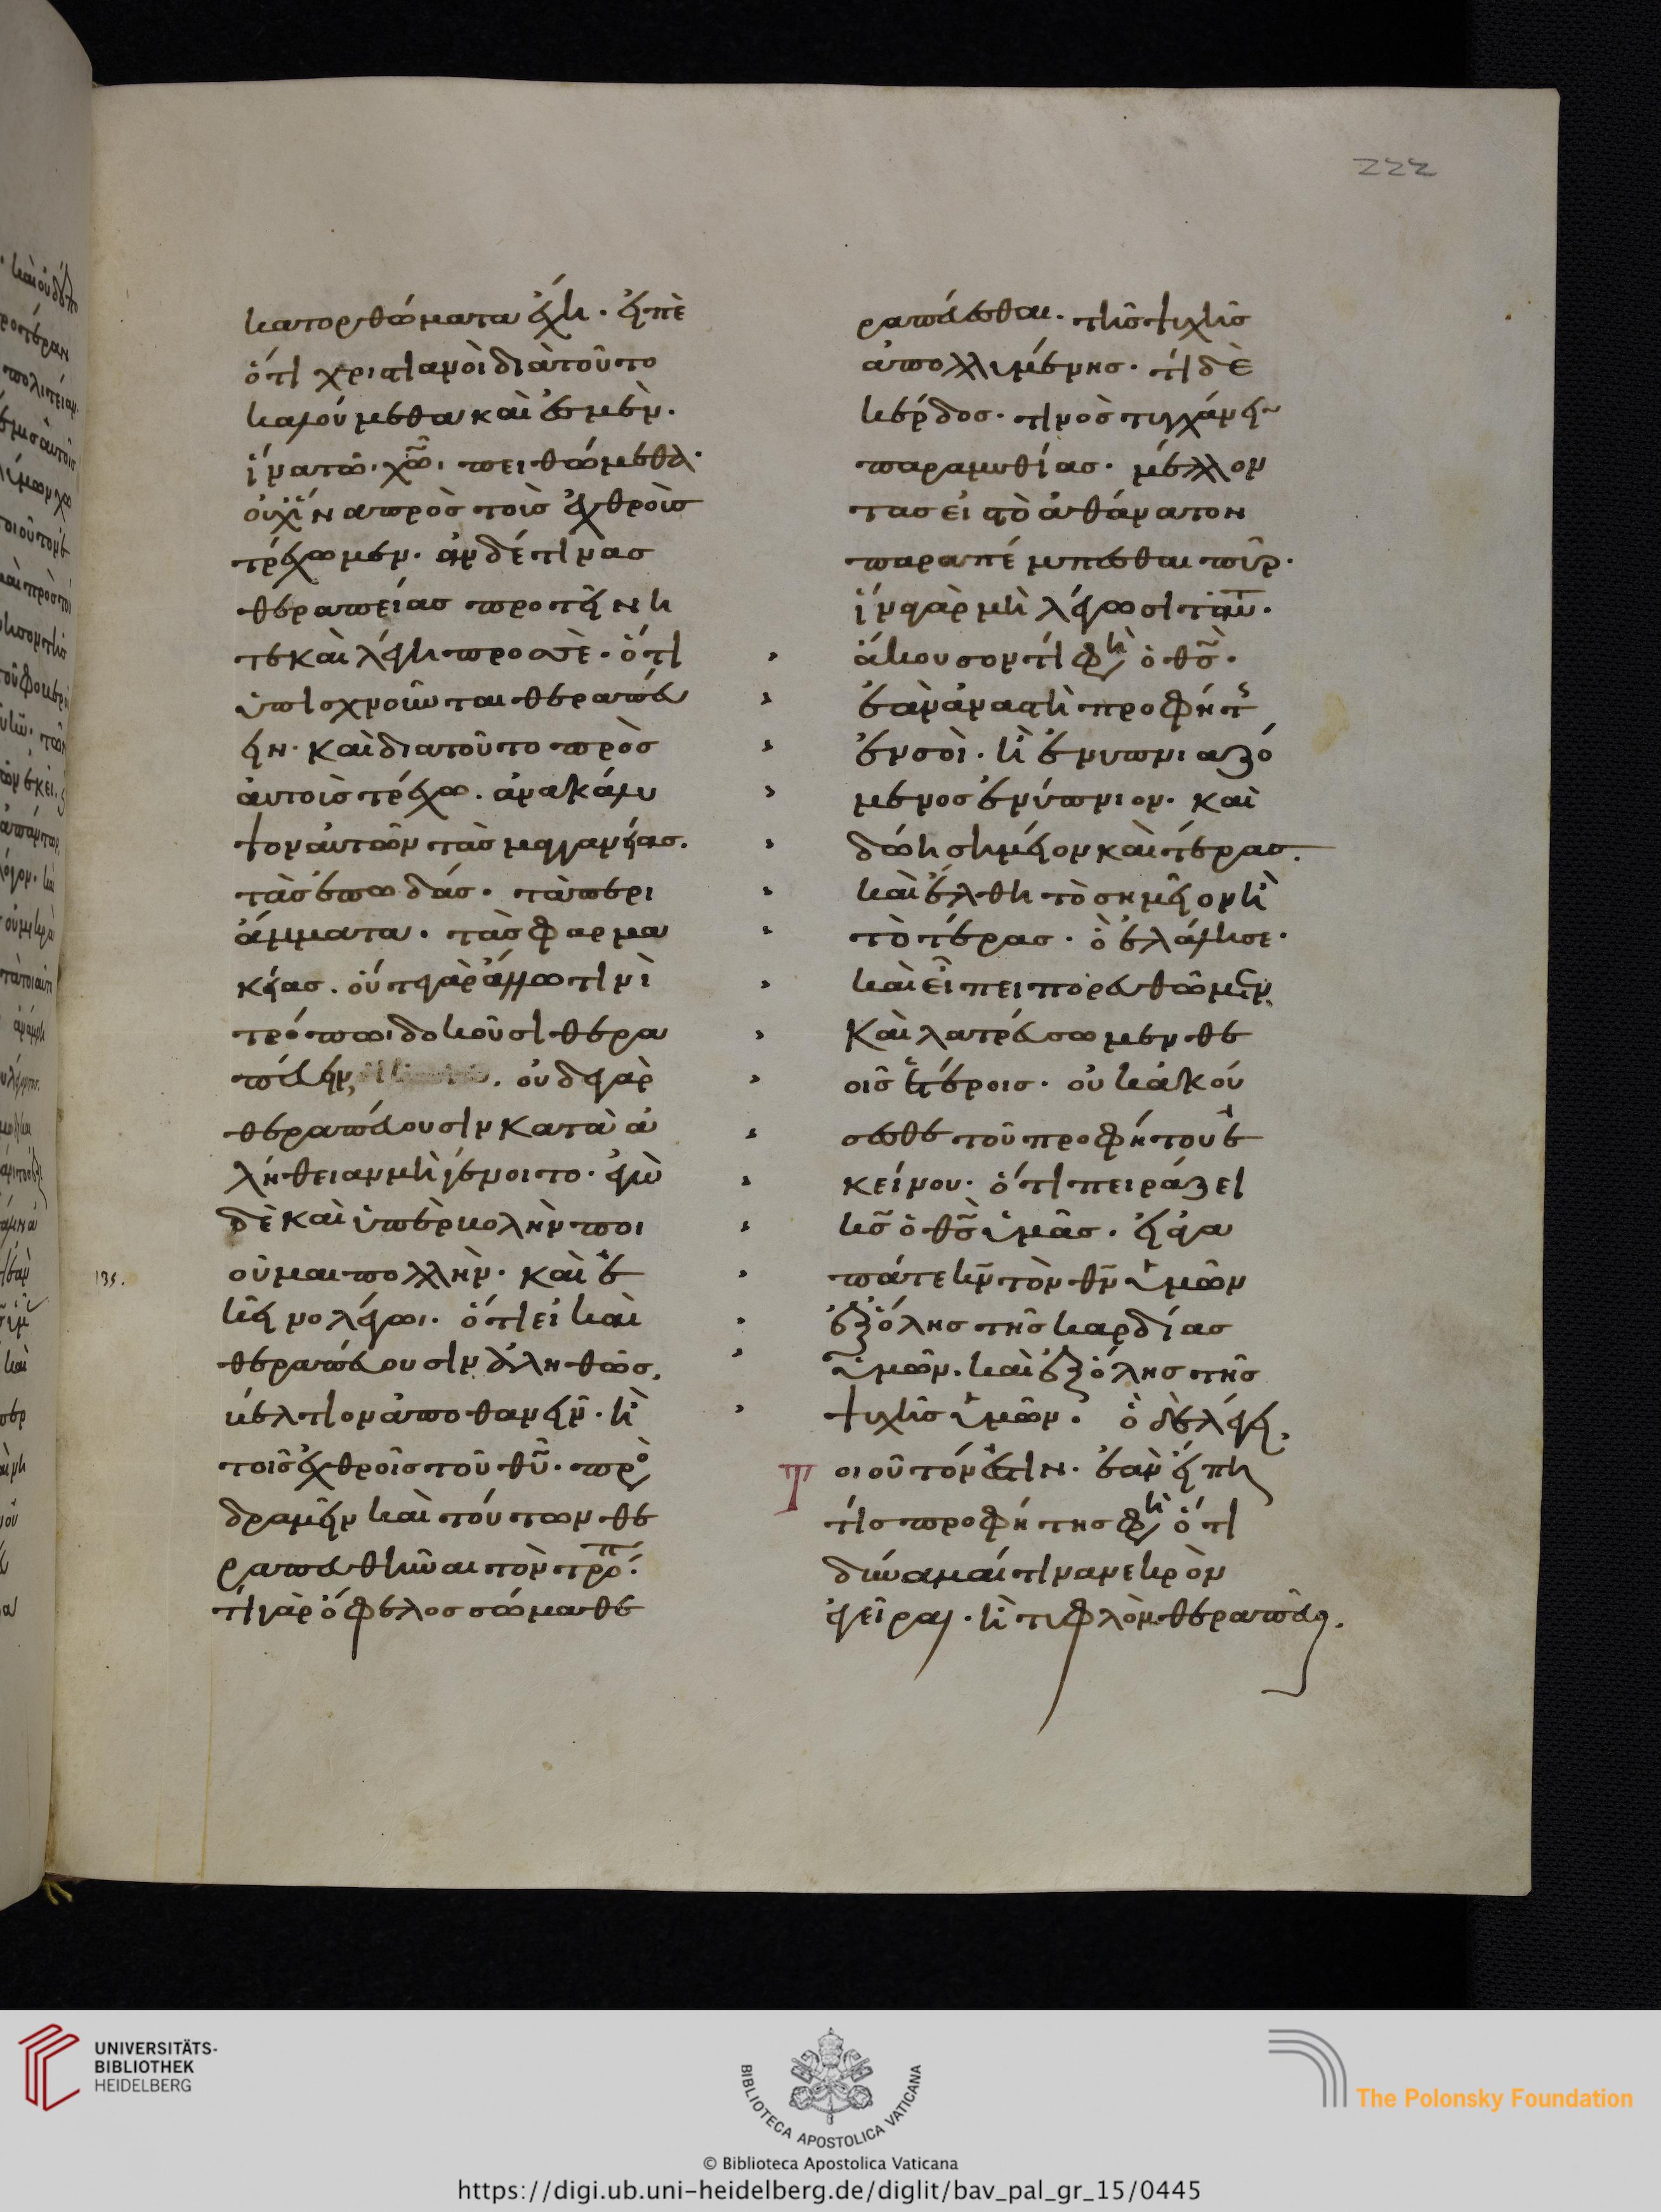 222
κατορθώματα ἔχη. εἰπὲ
ὅτι χριστιανοὶ διατοῦτο
καλούμεθα καὶ ἐσμὲν.
ἵνα τῶ χῶ πειθώμεθα.
οὐχ ἵνα πρὸς τοὺς ἐχθροὺς
τρέχωμεν. ἂν δέ τινας
θεραπείας προτείνη
τε καὶ λέγη προς σὲ. ὅτι
ὑπισχνοῦνται θεραπεύ
ειν. καὶ διατοῦτο πρὸς
αὐτοὺς τρέχω. ἀνακάλυ
ψον αὐτῶν τὰς μαγγανείας.
τὰς ἐπωδάς. τὰ περι
άμματα. τὰς φαρμα
κείας. οὔτε γὰρ ἄλλω τινὶ
τρόπωι δοκοῦσι θερα
πεύειν. οὐδὲ γὰρ
θεραπεύουσιν κατὰ ἀ
λήθειαν μὴ γένοιτο. ἐγὼ
δὲ καὶ ὑπερβολὴν ποι
οῦμαι πολλὴν. καὶ ἐ
κεῖνο λέγωι. ὅτι εἰ καὶ
θεραπεύουσιν ἀληθῶς.
βέλτιον ἀποθανεῖν. ἢ
τοῖς ἐχθροῖς τοῦ θῦ. προσ
δραμεῖν καὶ τούτων θε
ραπευθῆναι τὸν τρόπ.
τί γὰρ ὄφελος σῶμα θε
ραπεύεσθαι. τῆς ψυχῆς
ἀπολλυμένης. τί δὲ
κέρδος. τινὸς τυγχάνειν
παραμυθίας. μέλλον
τας εἰς τὸ ἀθάνατον
παραπέμπεσθαι πῦρ.
ἵνα γὰρ μὴ λέγωσι ταῦτ.
ἄκουσον τί φη ὁ θς.
ἐὰν ἀναστῆ προφήτης
ἐν σοὶ. ἢ ἐνυπνιαζό
μενος ἐνύπνιον. καὶ
δώη σημεῖον καὶ τέρας.
καὶ ἔλθη τὸ σημεῖον ἢ
τὸ τέρας. ὃ ἐλάλησε.
καὶ εἴπει πορευθῶμεν
καὶ λατρεύσωμεν θε
οῖς ἑτέροις. οὐκ ἀκού
σεσθε τοῦ προφήτου ἐ
κείνου. ὅτι πειράζει
κς ὁ θς ὑμᾶς. εἰ ἀγα
πάτε κν τὸν θν ὑμῶν
ἐξ ὅλης τῆς καρδίας
ὑμῶν. καὶ ἐξ ὅλης τῆς
ψυχῆς ὑμῶν. ὃ δὲ λέγει.
Τοιοῦτόν ἐστιν. ἐὰν εἴπη
τίς προφήτης φη ὅτι
δύναμαί τινα νεκρὸν
ἐγεῖραι. ἢ τυφλὸν θεραπεῦσαι.
135.
UNIVERSITÄTS-
BIBLIOTHEK
HEIDELBERG
BIBLIOTECA APOSTOLICA VATICANA
The Polonsky Foundation
© Biblioteca Apostolica Vaticana
https://digi.ub.uni-heidelberg.de/diglit/bav_pal_gr_15/0445